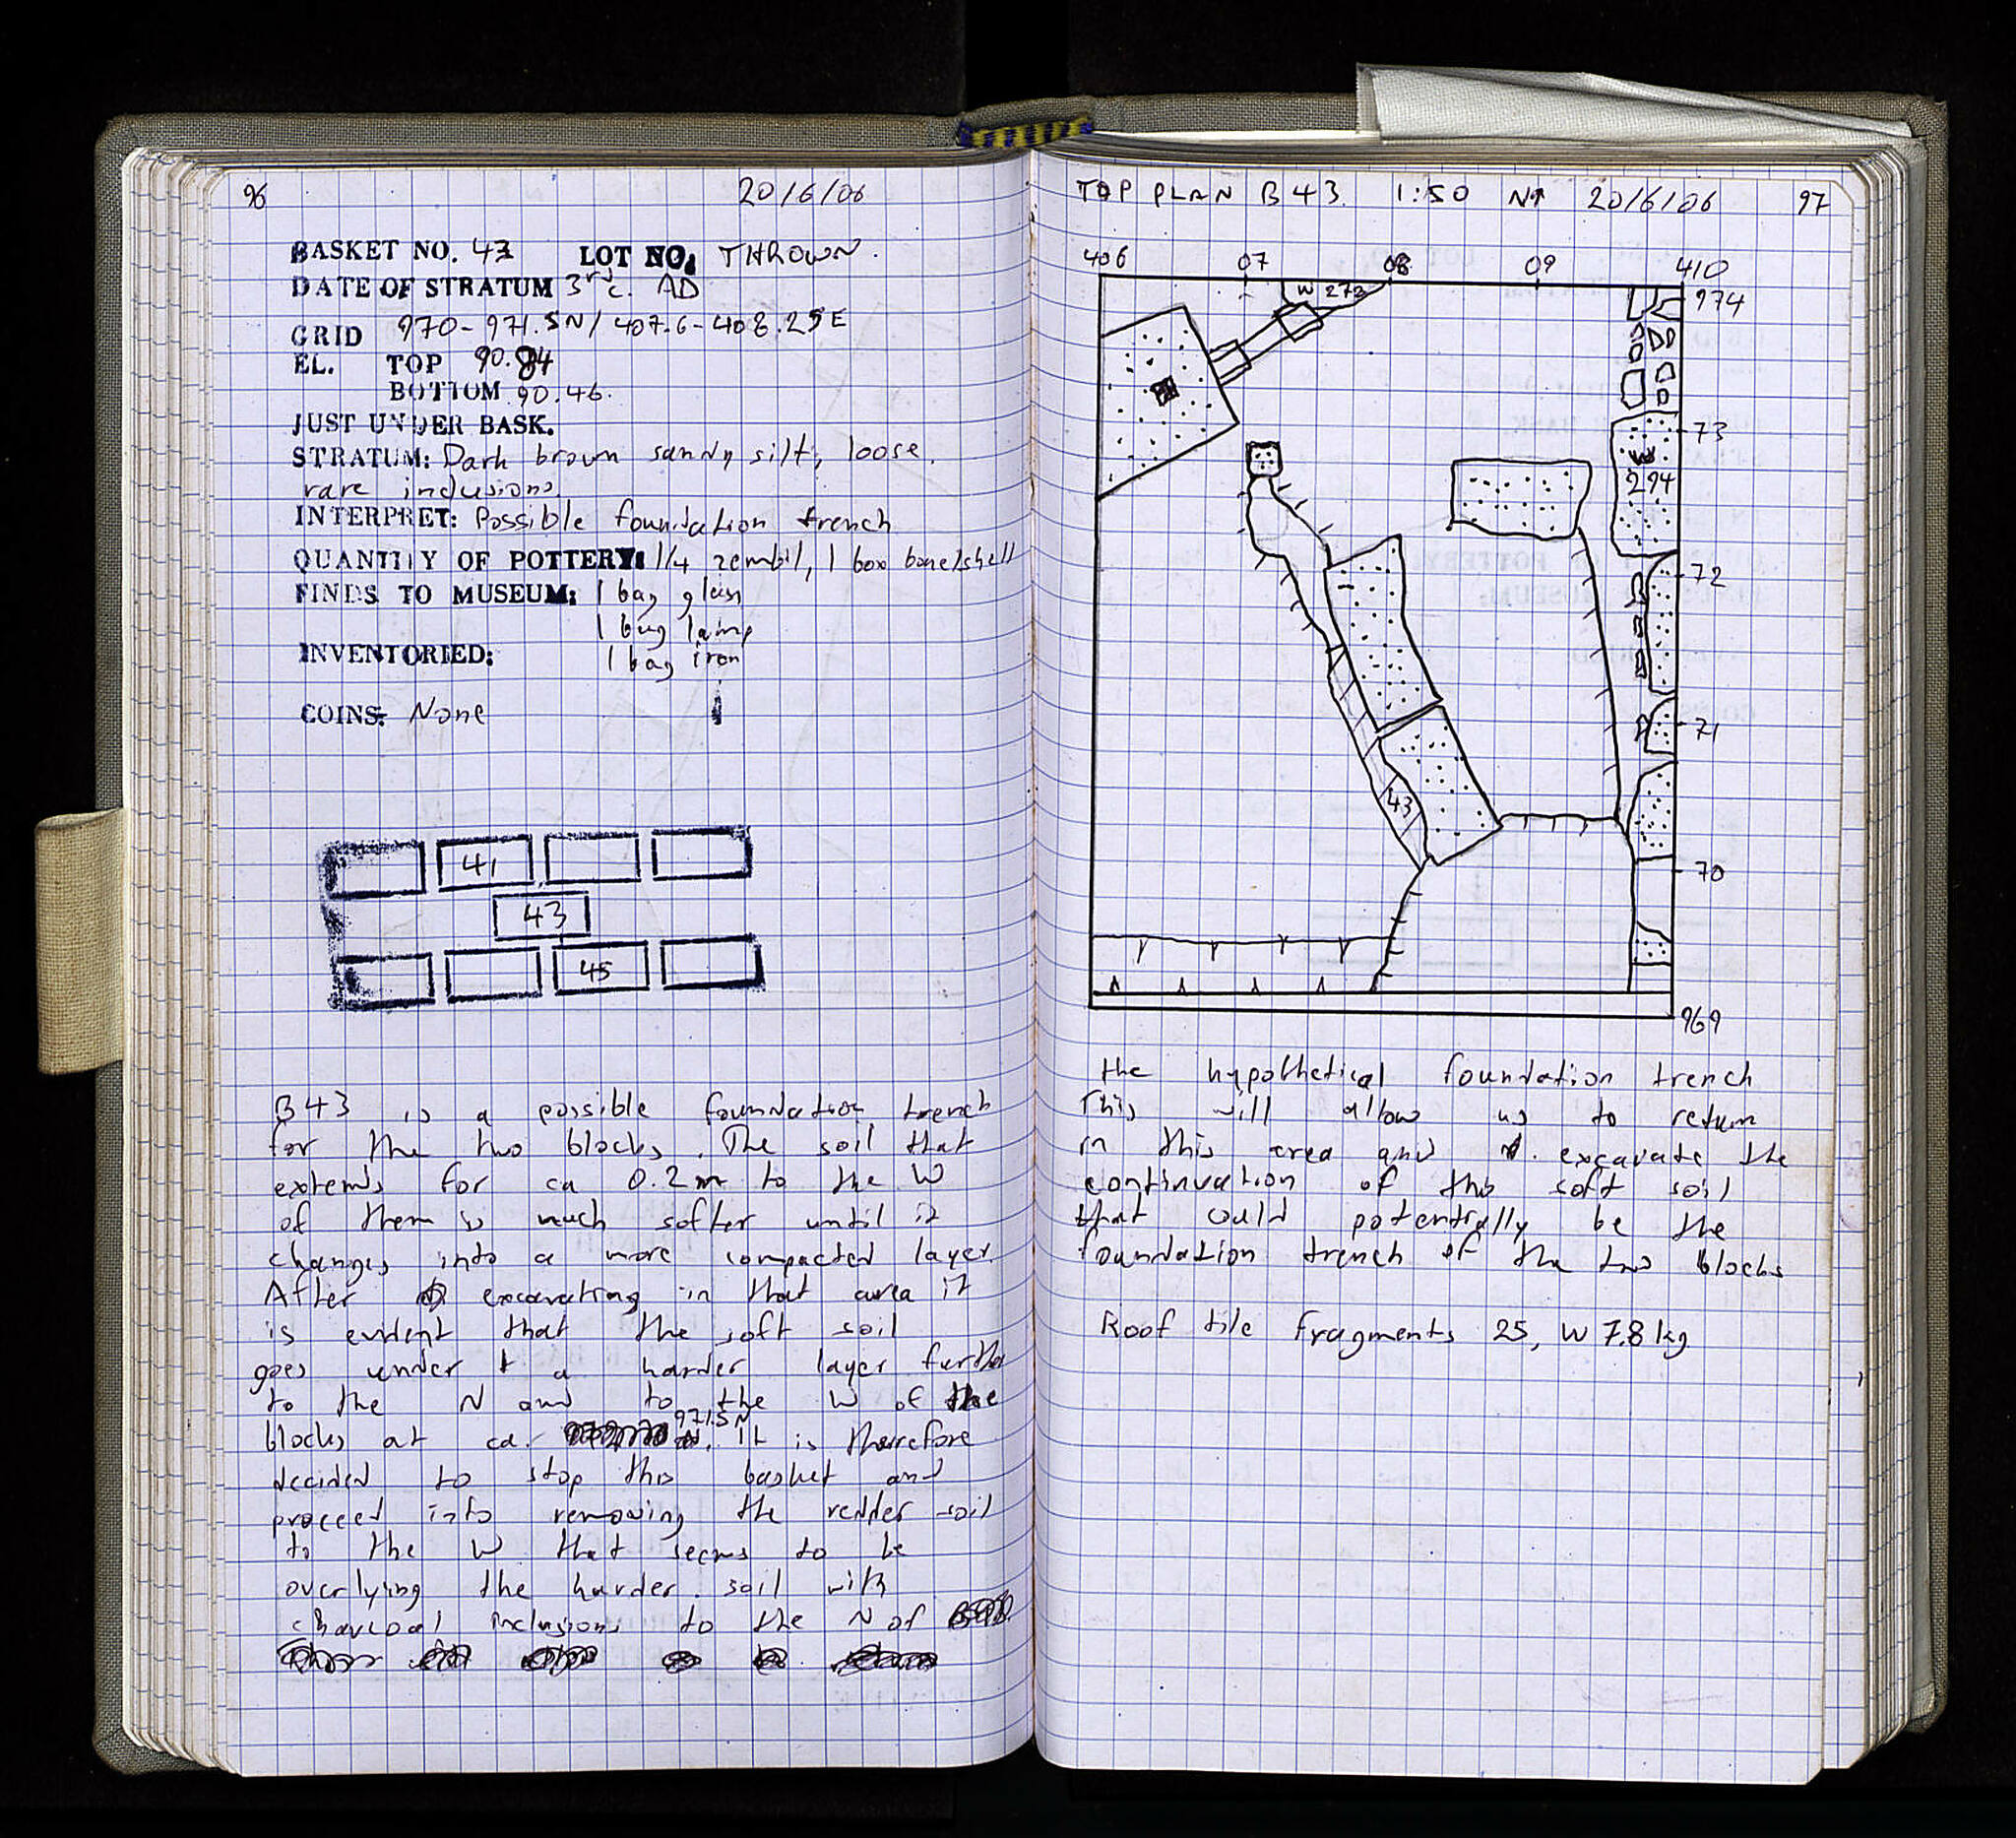 96 20/6/06
BASKET NO. 43 LOT NO: THROWN.
DATE OF STRATUM 3rd c. AD
GRID 970-971.5N/407.6-408.25E
EL. TOP 90.84
BOTTOM 90.46.
JUST UNDER BASK.
STRATUM: Dark brown sandy silt, loose.
rare inclusions
INTERPRET: Possible foundation trench
QUANTITY OF POTTERY: 1/4 zembil, 1 box bone/shell
FINDS TO MUSEUM: 1 bag glass
1 bag lamp
INVENTORIED: 1 bag iron
COINS: None
41
43
45
B43 is a possible foundation trench
for the two blocks. The soil that
extends for ca 0.2m to the W
of them is much softer until it
changes into a more compacted layer.
After excavating in that area it
is evident that the soft soil
goes under a harder layer further
to the N and to the W of the
blocks at ca. 971.5N. It is therefore
decided to stop this basket and
proceed into removing the redder soil
to the W that seems to be
overlying the harder soil with
charcoal inclusions to the N of
TOP PLAN B43 1:50 N↑ 20/6/06 97
406 07 08 09 410
W 273 974
73
W
294
72
71
43
70
969
the hypothetical foundation trench
This will allow us to return
in this area and excavate the
continuation of this soft soil
that could potentially be the
foundation trench of the two blocks
Roof tile fragments 25, W 7.8 kg